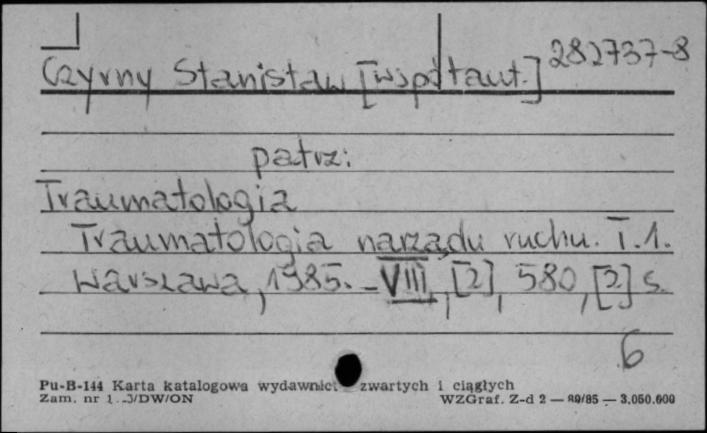 Czyrny Stanisław [współaut.] 282737-8
patrz:
Traumatologia
Traumatologia narządu ruchu. T.1.
Warszawa, 1985. - VIII, [2], 580, [2] s.
6
Pu-B-144 Karta katalogowa wydawnict zwartych i ciągłych
Zam. nr /DW/ON WZGraf. Z-d 2 — /85 — 3.050.000